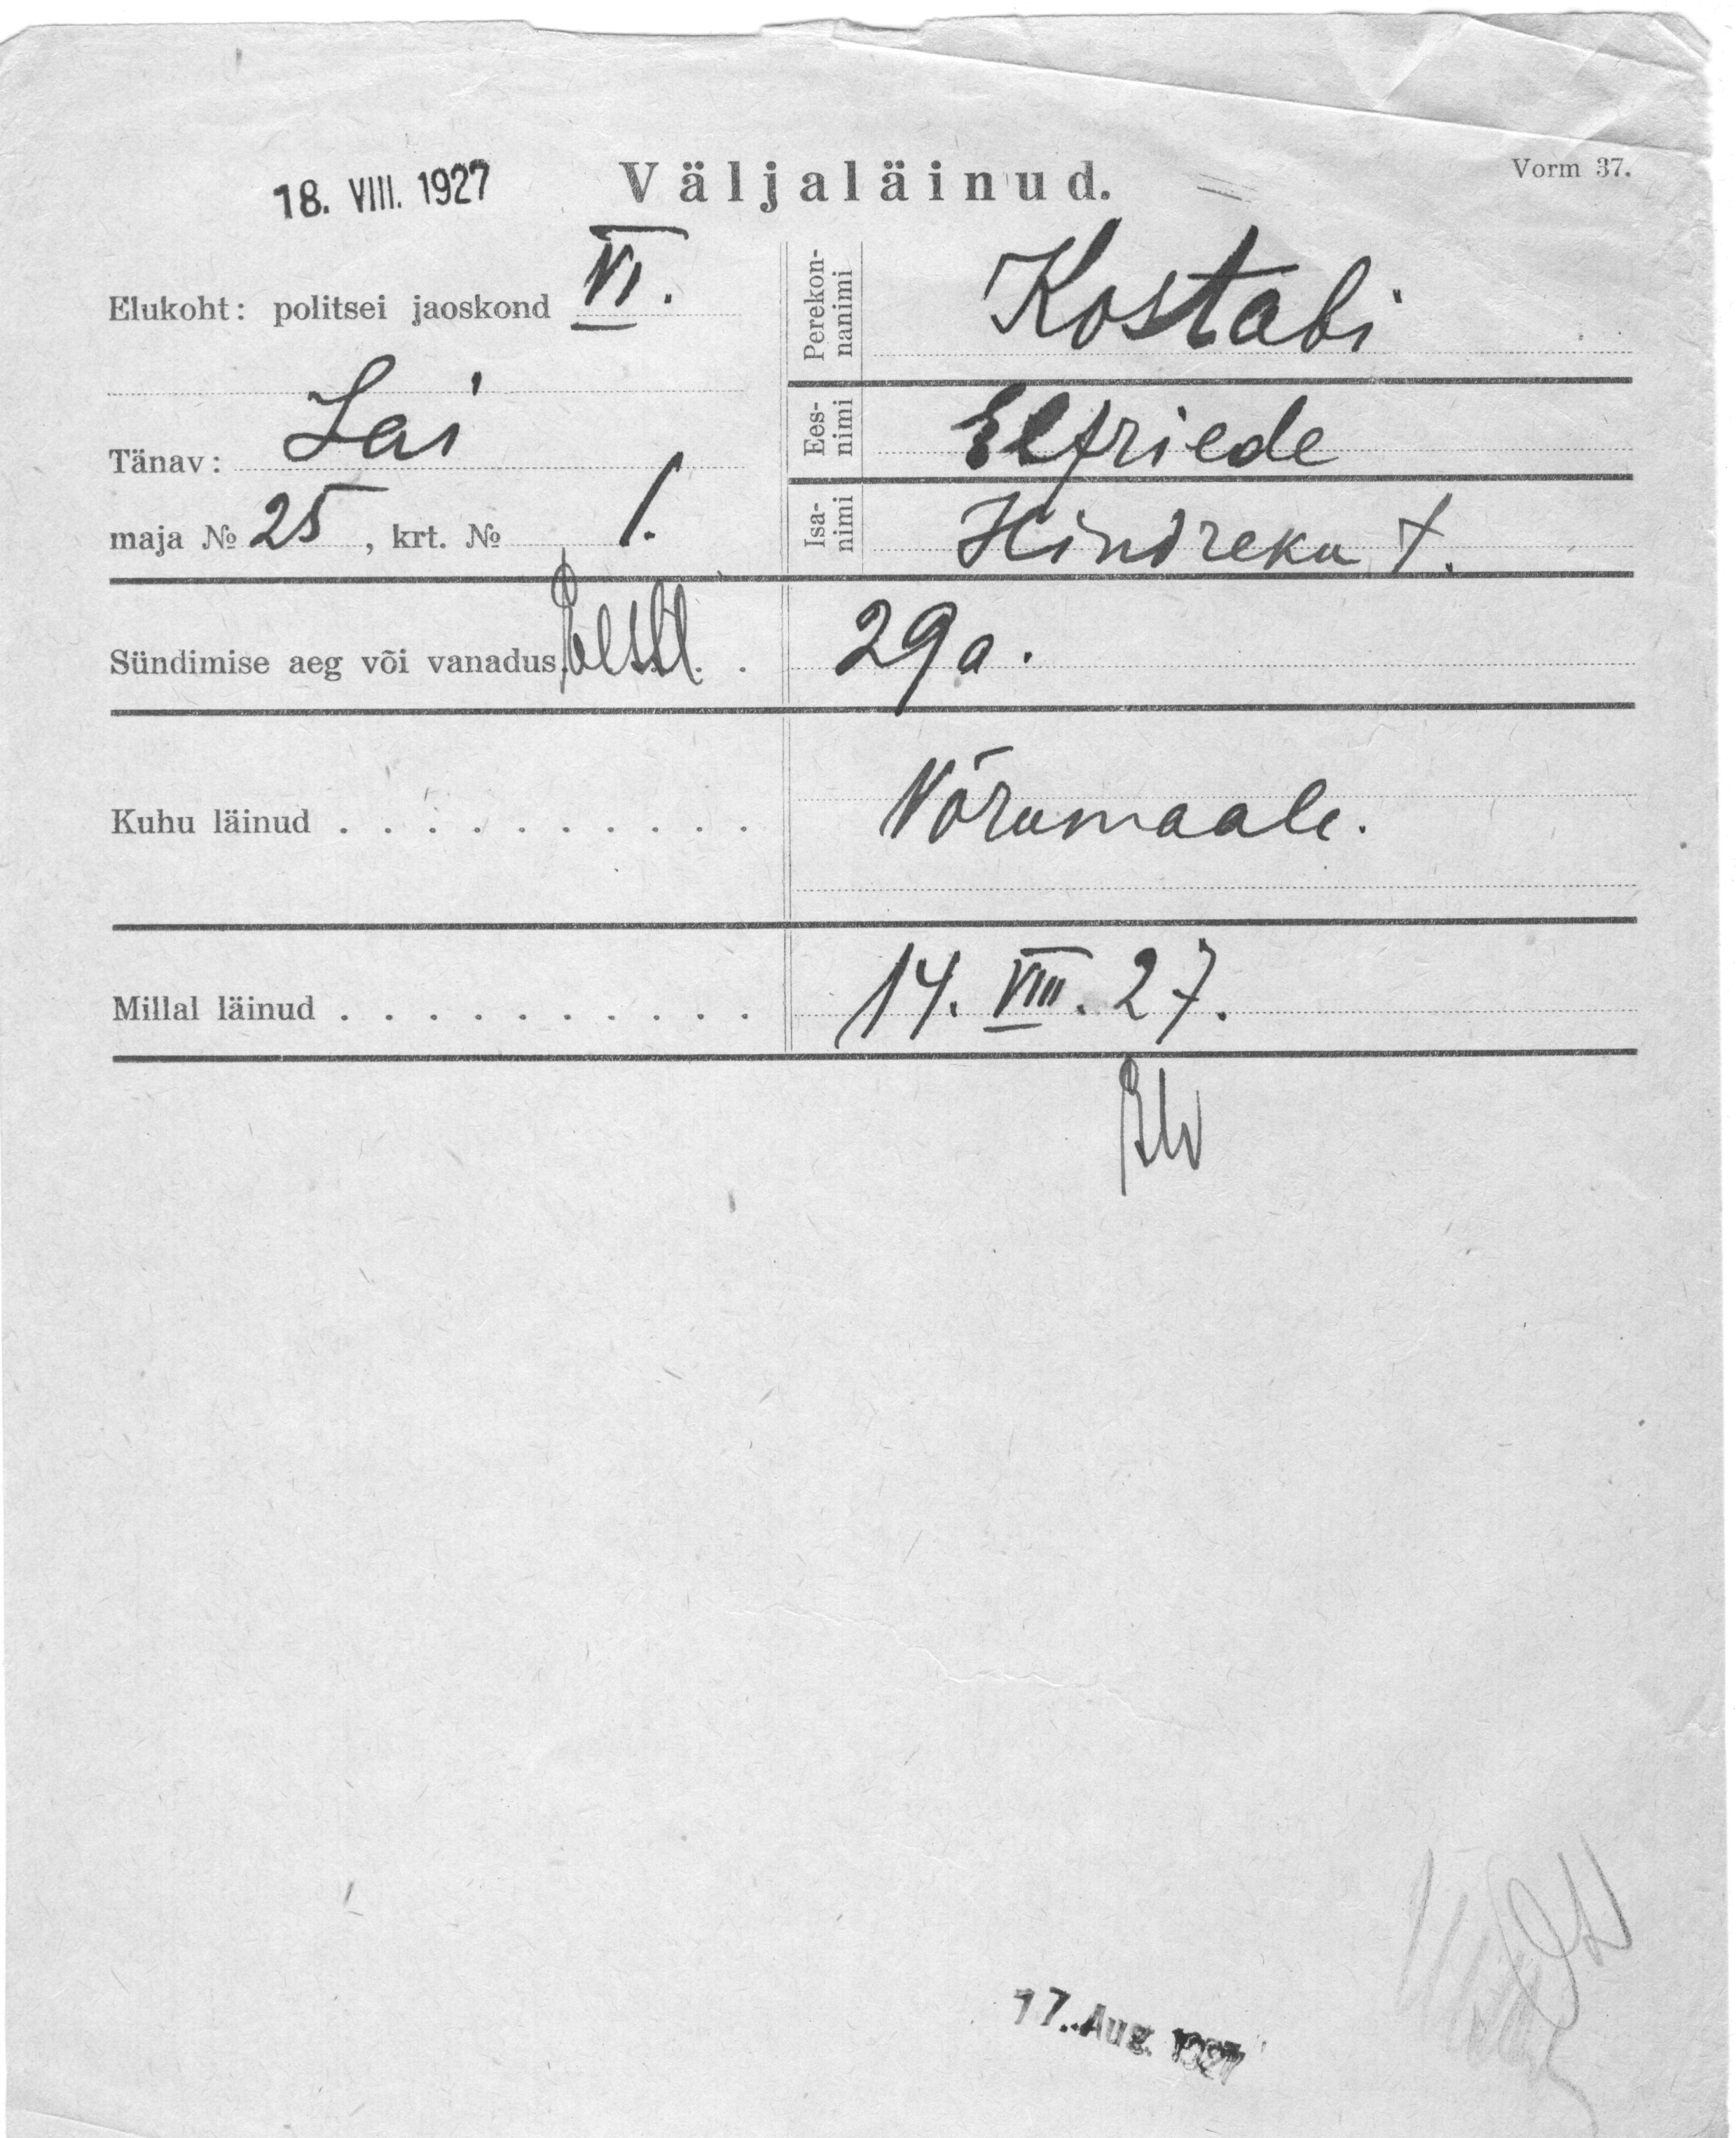 18. VIII. 1927
Väljaläinud.
Vorm 37.
Elukoht: politsei jaoskond VI.
Tänav: Lai
maja № 25, krt. № 1.
Perekon-
nanimi
Kostabi
Ees-
nimi
Elfriede
Isa-
nimi
Hindreku t.
Sündimise aeg või vanadus. . 29 a.
Kuhu läinud . . . . . . . . . . Võrumaale.
Millal läinud . . . . . . . . . . 14. VIII. 27.
17. Aug. 1927